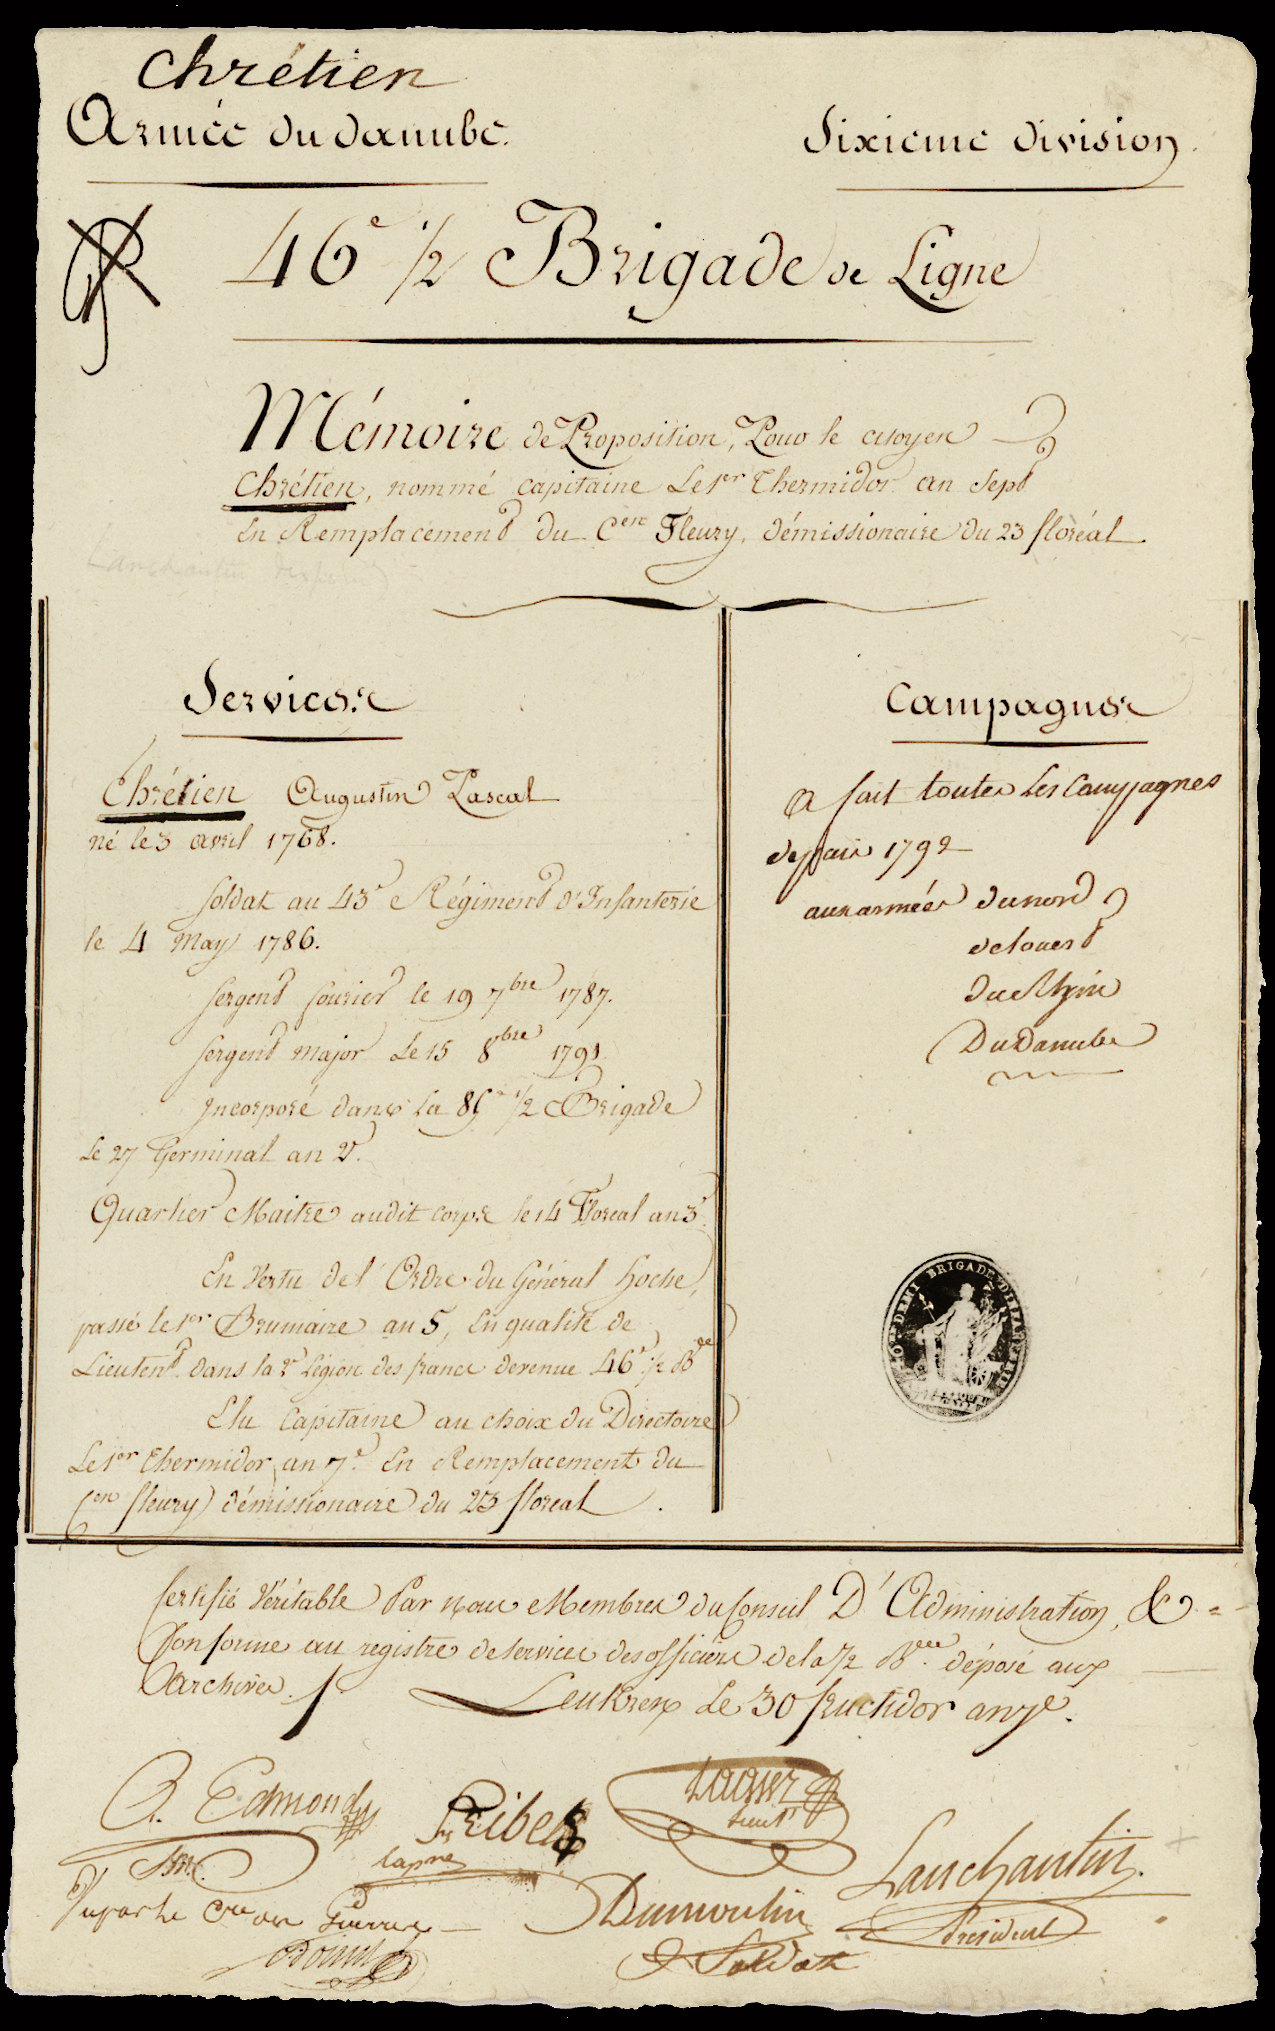 Chrétien
Armée du danube.
Sixieme division.
46e 1/2 Brigade de Ligne
Mémoire de Proposition, Pour le citoyen
Chrétien, nommé capitaine Le 1er Thermidor an Sept
En Remplacement du Cen Fleury, démissionaire du 23 floréal
Services
Chrétien Augustin Pascal
né le 3 avril 1768.
Soldat au 43e Régiment d'Infanterie
le 4 May 1786.
Sergent fourier le 19 7bre 1787.
Sergent Major Le 15 8bre 1791
Incorporé dans la 85e 1/2 Brigade
Le 27 Germinal an 2e.
Quartier Maitre audit corps le 14 Floreal an 3e
En Vertu de l'Ordre du Général hoche,
passé le 1er Brumaire an 5, En qualité de
Lieutent. dans la 2e Légion des francs devenue 46e 1/2 Bde
Elu Capitaine au choix du Directoire
Le 1er Thermidor an 7e. En Remplacement du
Cen fleury démissionaire du 23 floreal.
Campagnes
a fait toutes Les Campagnes
depuis 1792
aux armées du nord
de louest
du Rhin
Du Danube
DEMI BRIGADE D'INFANTERIE
Certifié Véritable Par nous Membres du Conseil D'Administration, &
Conforme au registre de services des officiers de la 1/2 Bde. déposé aux
Archives.
Le 30 fructidor an 7e.
Edmond
Ribe
capne
Lieut
Lanchantin
Président
Dumoulin
Soldat